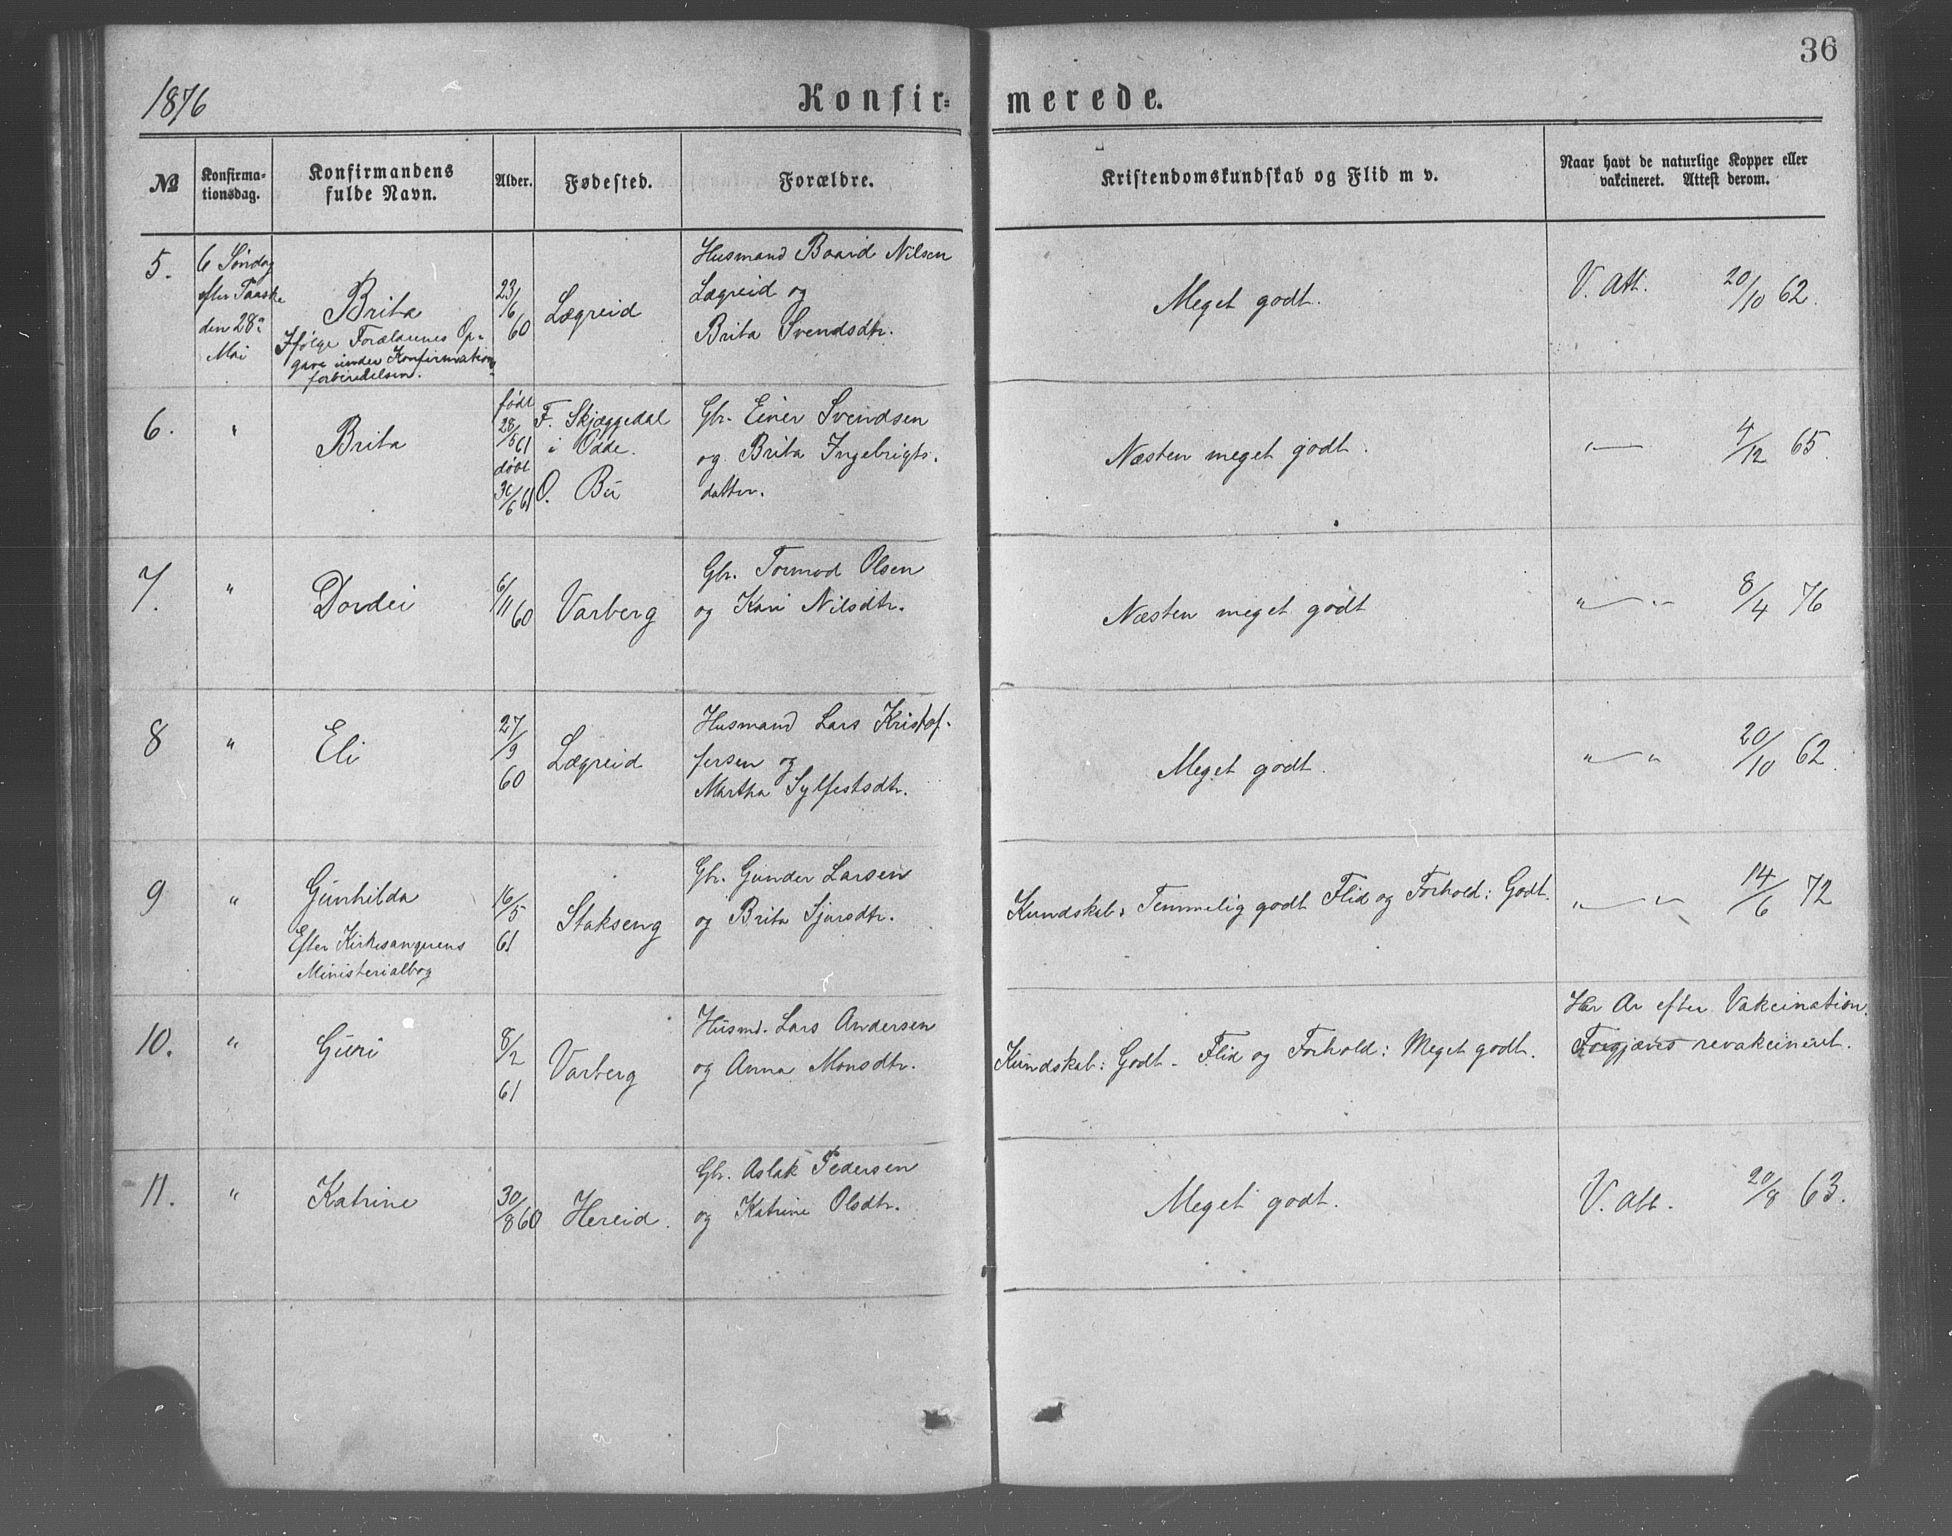 36
1876
Konfir=
merede.
№
Konfirma-
tionsdag.
Konfirmandens
fulde Navn.
Alder.
Fødested.
Forældre.
Kristendomskundskab og Flid m v.
Naar havt de naturlige Kopper eller
vakcineret. Attest derom.
5.
6 Søndag
efter Paaske
den 28de
Mai
Brita
Ifølge Forældrenes Op-
gave under Konfirmations-
forberedelsen.
23/6
60
Lægreid
Husmand Baard Nilsen
Lægreid og
Brita Svendsdtr.
Meget godt.
V. Att. 20/10 62.
6.
"
Brita
født
28/5 61
døbt
30/6 61
F. Skjæggedal
i Odde.
O. Bu
Gbr. Einer Svendsen
og Brita Ingebrigts-
datter.
Næsten meget godt.
"— 4/12 65.
7.
"
Dordei
6/11 60
Varberg
Gbr. Tormod Olsen
og Kari Nilsdtr.
Næsten meget godt
"—" 8/4 76
8
"
Eli
27/9
60
Lægreid
Husmand Lars Kristof-
fersen og
Martha Sylfestsdtr.
Meget godt.
"—" 20/10 62.
9
"
Gunhilda
Efter Kirkesangerens
Ministerialbog
16/5
61
Stakseng
Gbr. Gunder Larsen
og Brita Sjursdtr.
Kundskab: Temmelig godt Flid og Forhold: Godt.
"—" 14/6 72
10.
"
Guri
8/2
61
Varberg
Husmd. Lars Andersen
og Anna Monsdtr.
Kundskab: Godt - Flid og Forhold: Meget godt.
Har Ar efter Vakcination.
Forgjæves revakcineret.
11.
"
Katrine
30/8 60
Hereid.
Gbr. Aslak Pedersen
og Katrine Olsdtr.
Meget godt.
V. Att. 20/8 63.